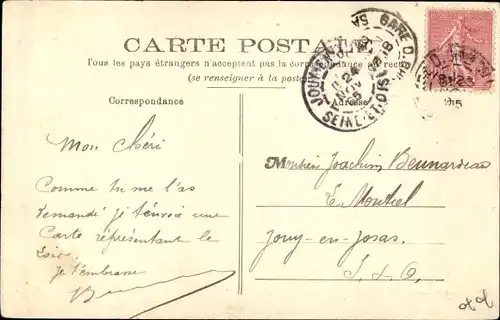 CARTE POSTALE
Tous les pays étrangers n'acceptent pas la correspondance au recto
(se renseigner à la poste)
Correspondance
Adresse
JOUY-EN-
24
NOV
05
SEINE-ET-OISE
GARE D.
Mon Chéri
Comme tu me l'as
demandé je t'envoie une
Carte représentant le
Soir.
Je t'embrasse
Monsieur Joachim
E. Montiel
Jouy-en-Josas.
S. & O.